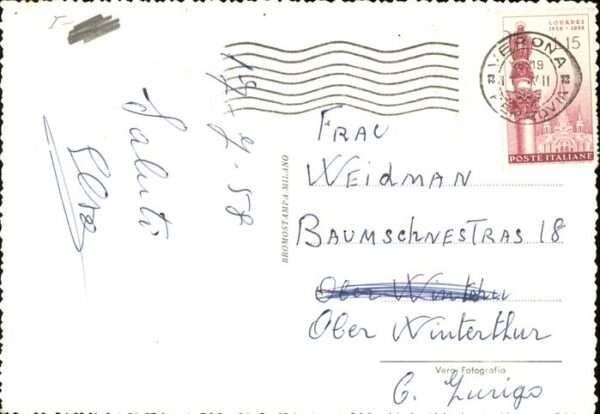 Saluti
19-7-58
BROMOSTAMPA-MILANO
LOURDES
1858-1958
L.15
POSTE ITALIANE
VERONA
FERROVIA
FRAU
WEIDMAN
BAUMSCHNESTRAS 18
Ober Winterthur
Vera Fotografia
C. Zurigo